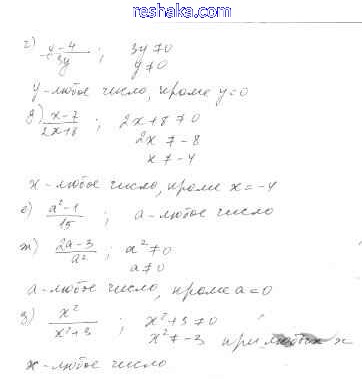 reshaka.com
г) y-4/3y ; 3y ≠ 0
y ≠ 0
y - любое число, кроме y = 0
д) x-7/2x+8 ; 2x+8 ≠ 0
2x ≠ -8
x ≠ -4
x - любое число, кроме x = -4
е) a²-1/15 ; a - любое число
ж) 2a-3/a² ; a² ≠ 0
a ≠ 0
a - любое число, кроме a = 0
з) x²/x²+3 ; x²+3 ≠ 0
x² ≠ -3 при любых x
x - любое число